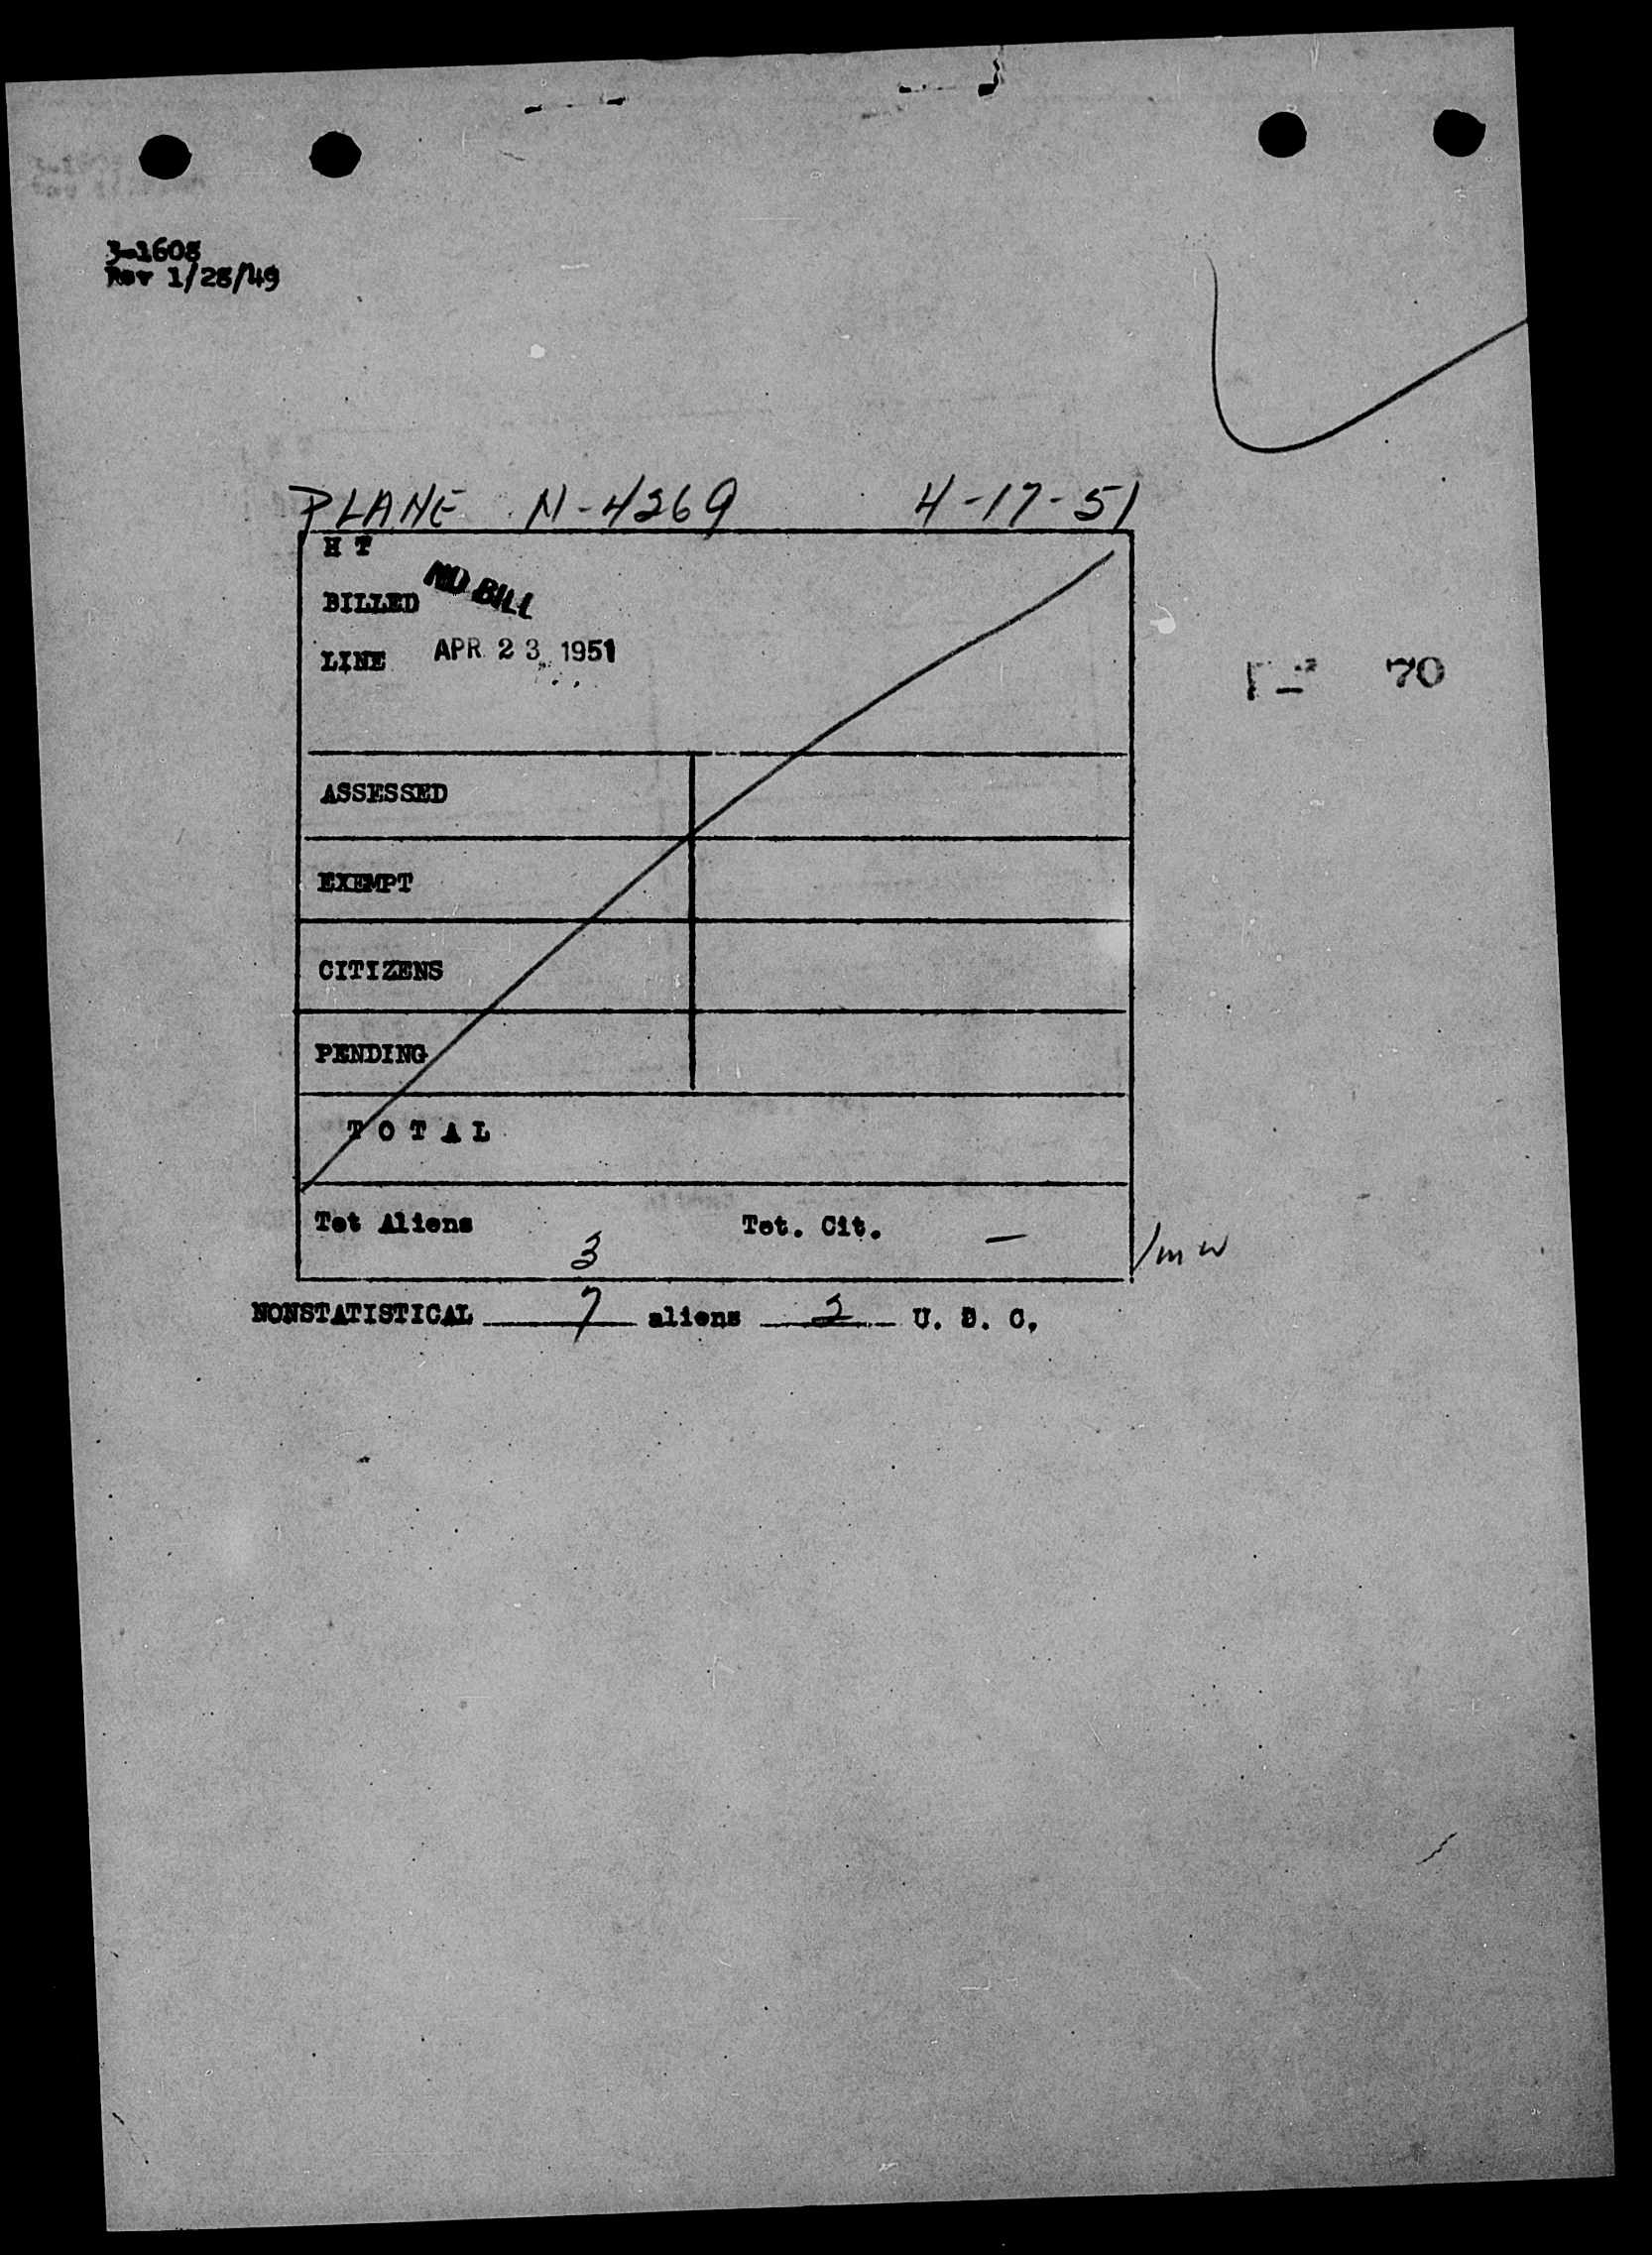 3-1608
Rev 1/28/49
PLANE N-4269 4-17-51
H T
NO BILL
BILLED
LINE APR 23 1951
70
ASSESSED
EXEMPT
CITIZENS
PENDING
T O T A L
Tot Aliens 3 Tot. Cit. —
/mw
NONSTATISTICAL 7 aliens 2 U. S. C.